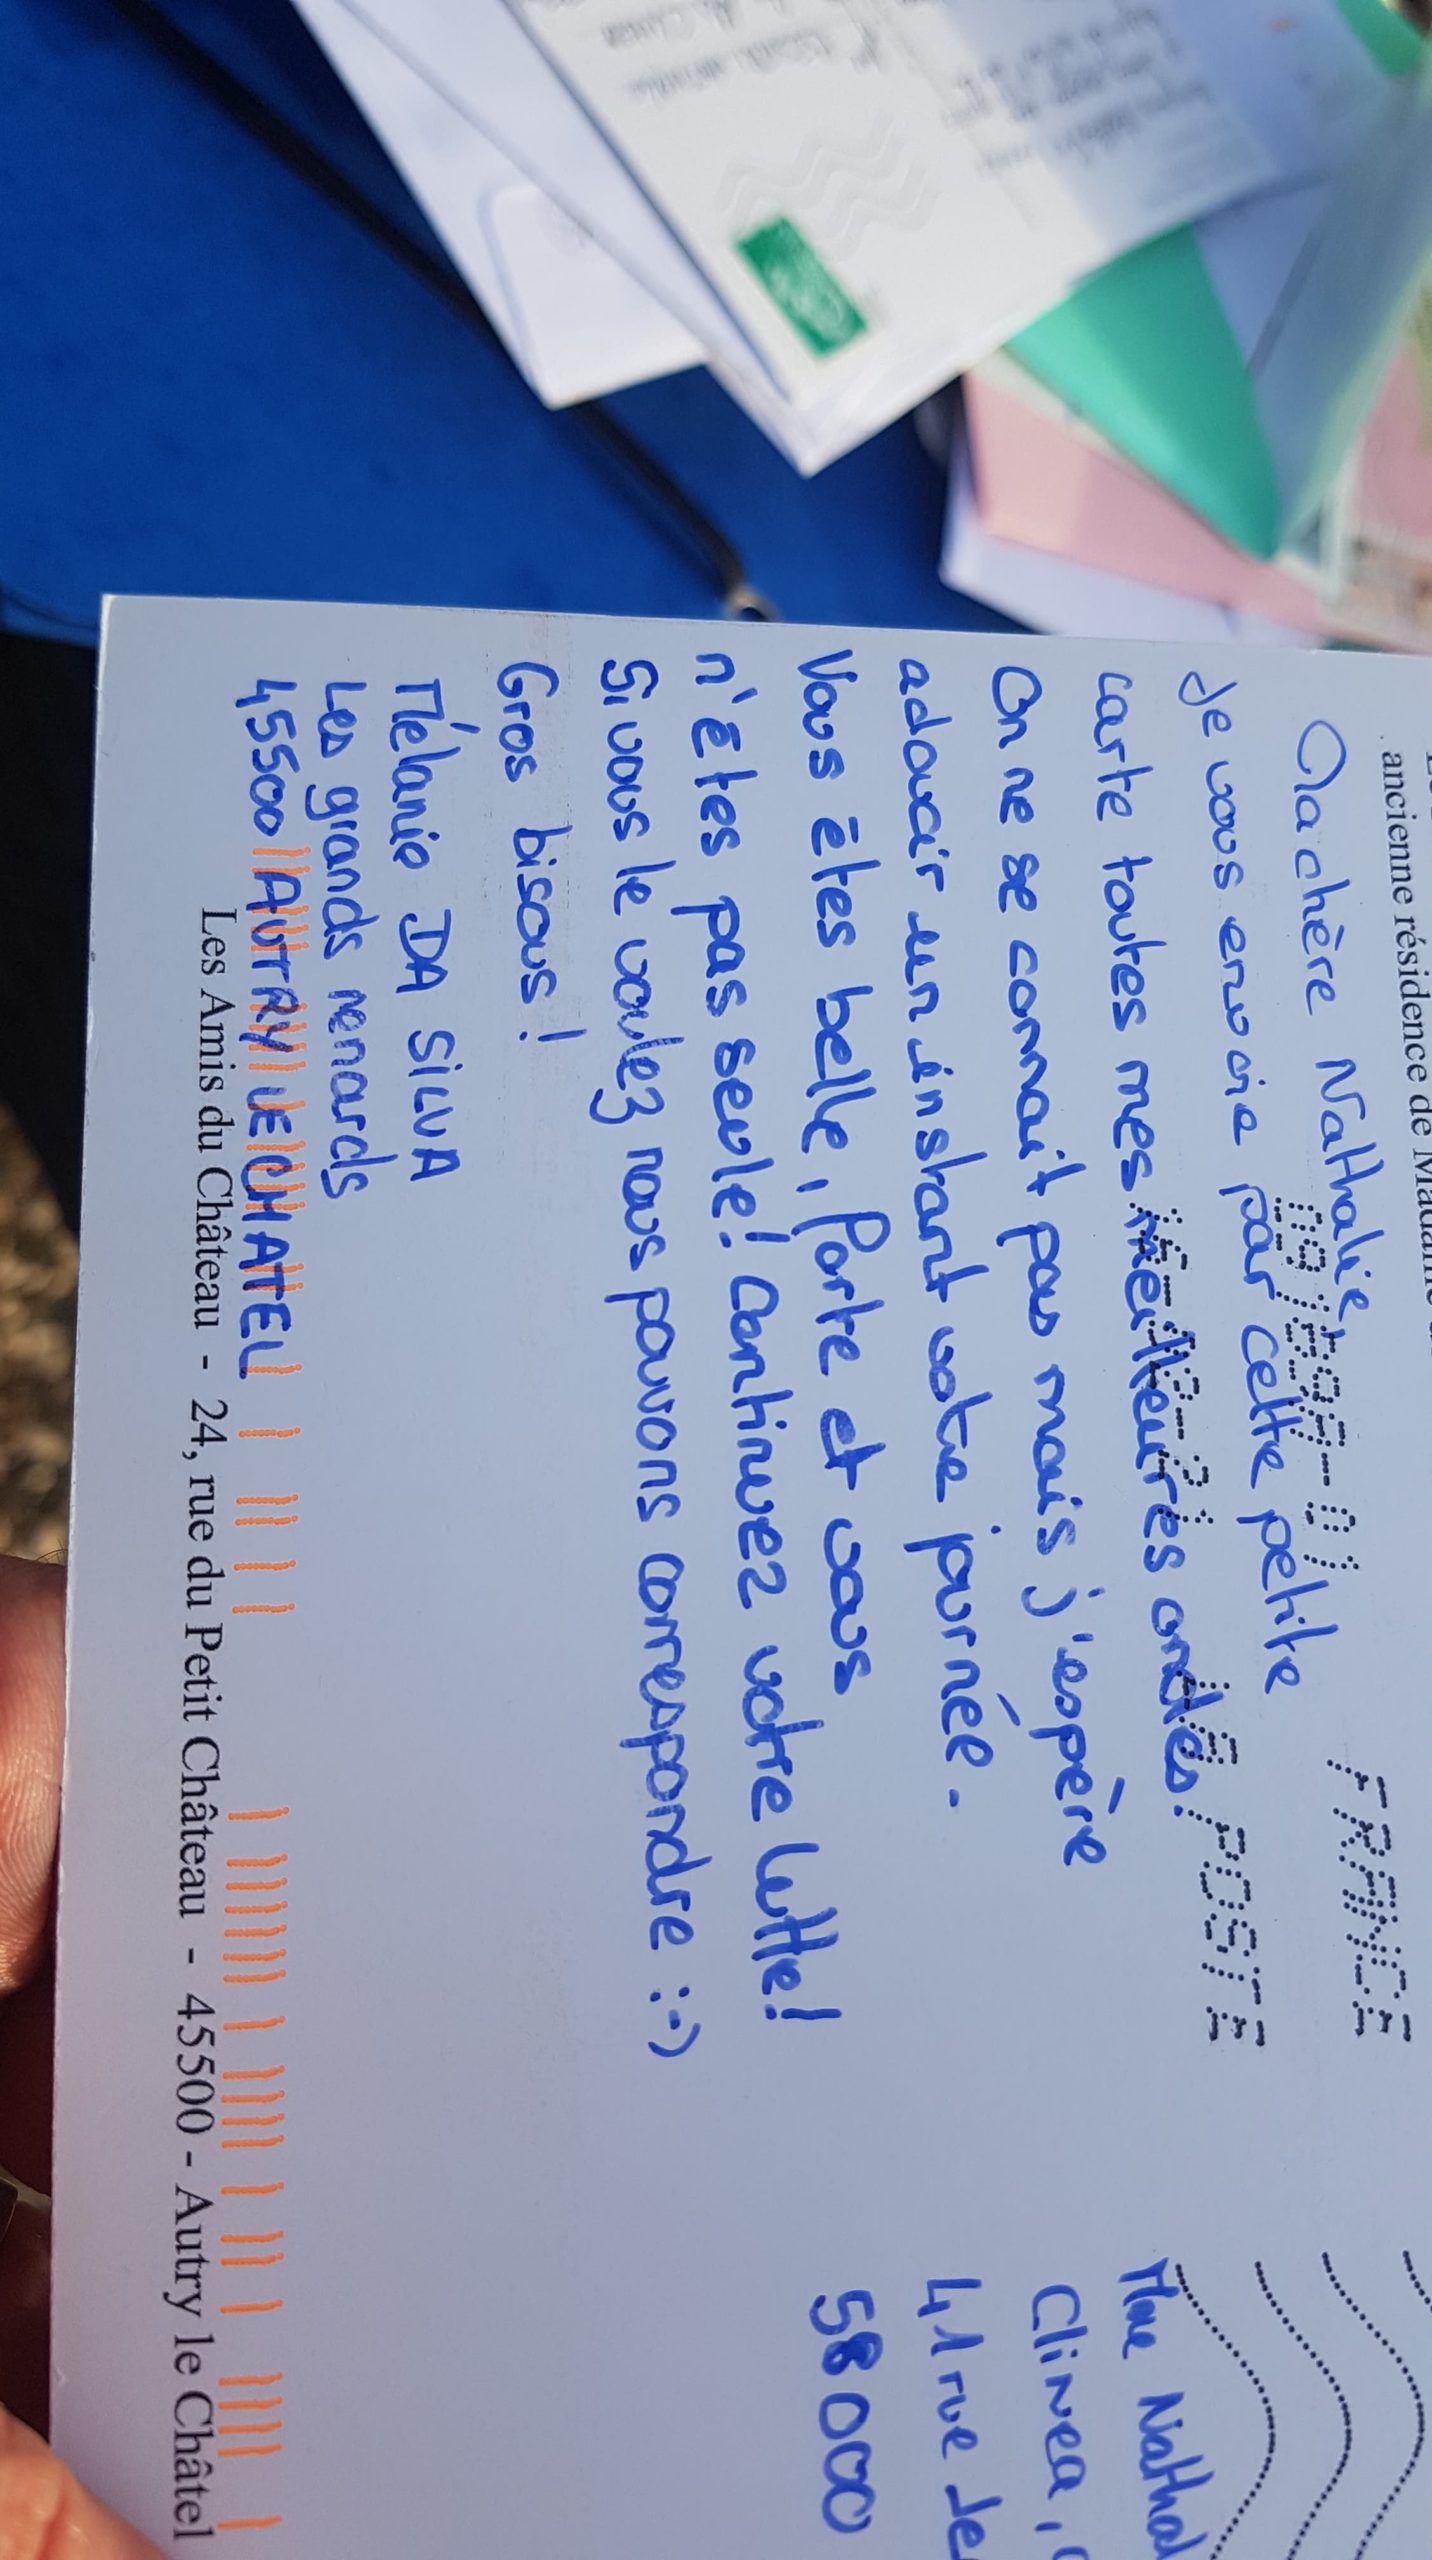 ancienne résidence de
Ma chère Nathalie,
Je vous envoie par cette petite
carte toutes mes meilleures ondes.
On ne se connait pas mais j'espère
adoucir un instant votre journée.
Vous êtes belle, forte et vous
n'êtes pas seule! Continuez votre lutte!
Si vous le voulez nous pouvons correspondre :-)
Gros bisous!
Mélanie DA SILVA
Les grands renards
45500 AUTRY LE CHATEL
FRANCE
LA POSTE
Mme
Clinea,
41 rue
58000
Les Amis du Château - 24, rue du Petit Château - 45500 - Autry le Châtel